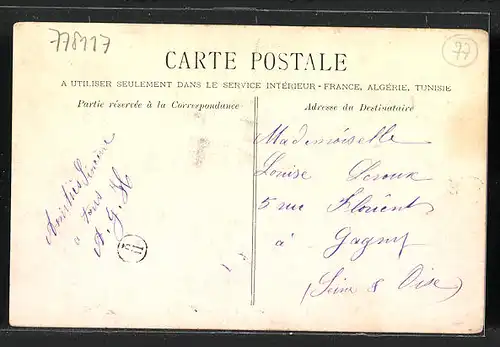 778117
77
CARTE POSTALE
A UTILISER SEULEMENT DANS LE SERVICE INTÉRIEUR - FRANCE, ALGÉRIE, TUNISIE
Partie réservée à la Correspondance
Adresse du Destinataire
Amitiés Sincères
a tous
A. G. H
Mademoiselle
Louise Leroux
5 rue Florient
à Gagny
(Seine & Oise)